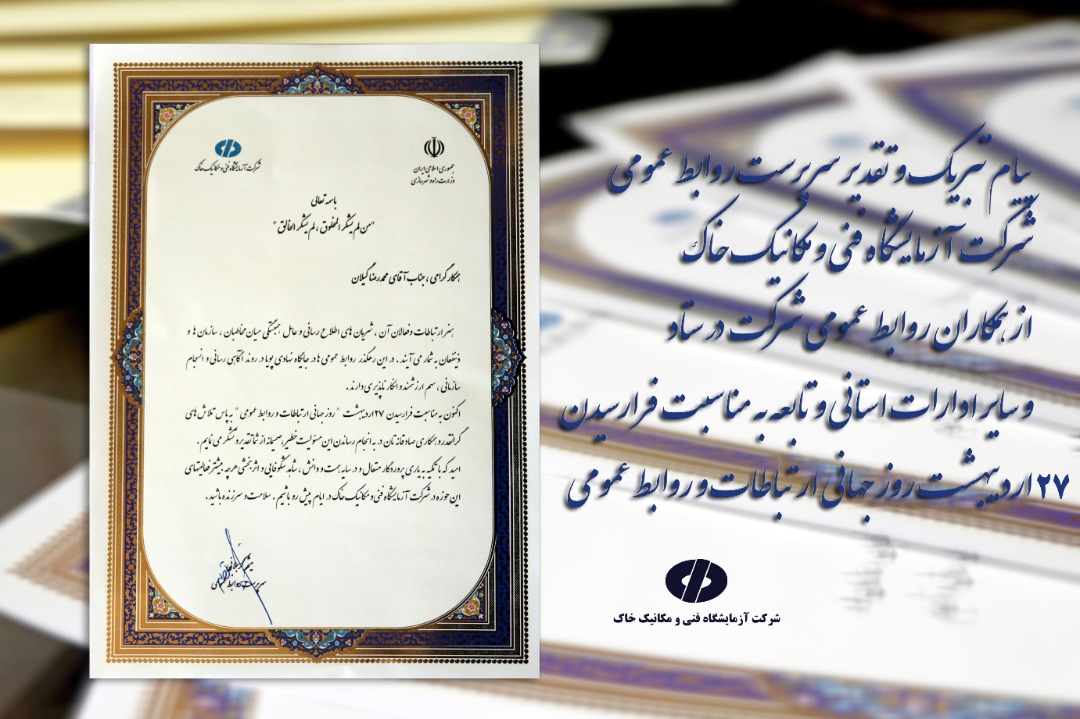 شرکت آزمایشگاه فنی و مکانیک خاک
جمهوری اسلامی ایران
وزارت راه و شهرسازی
باسمه تعالی
"من لم یشکر المخلوق ، لم یشکر الخالق"
همکار گرامی ، جناب آقای محمدرضا گیلان
هنر ارتباطات و فعالان آن ، شریان های اطلاع رسانی و عامل همبستگی میان مخاطبان ، سازمان ها و
ذینفعان به شمار می آیند . در این رهگذر روابط عمومی ها در جایگاه نهادی پویا در روند آگاهی رسانی و انسجام
سازمانی ، سهم ارزشمند و انکار ناپذیری دارند .
اکنون به مناسبت فرارسیدن ۲۷ اردیبهشت "روز جهانی ارتباطات و روابط عمومی" به پاس تلاش های
گرانقدر و همکاری صادقانه تان در به انجام رساندن این مسئولیت خطیر ، صمیمانه از شما تقدیر و تشکر می نمایم .
امید که با تکیه به یاری پروردگار متعال و در سایه همت و دانش ، شاهد شکوفایی و اثربخشی هرچه بیشتر فعالیتهای
این حوزه در شرکت آزمایشگاه فنی و مکانیک خاک در ایام پیش رو باشیم . سلامت و سرزنده باشید .
سرپرست روابط عمومی
پیام تبریک و تقدیر سرپرست روابط عمومی
شرکت آزمایشگاه فنی و مکانیک خاک
از همکاران روابط عمومی شرکت در ستاد
و سایر ادارات استانی و تابعه به مناسبت فرارسیدن
۲۷ اردیبهشت روز جهانی ارتباطات و روابط عمومی
شرکت آزمایشگاه فنی و مکانیک خاک